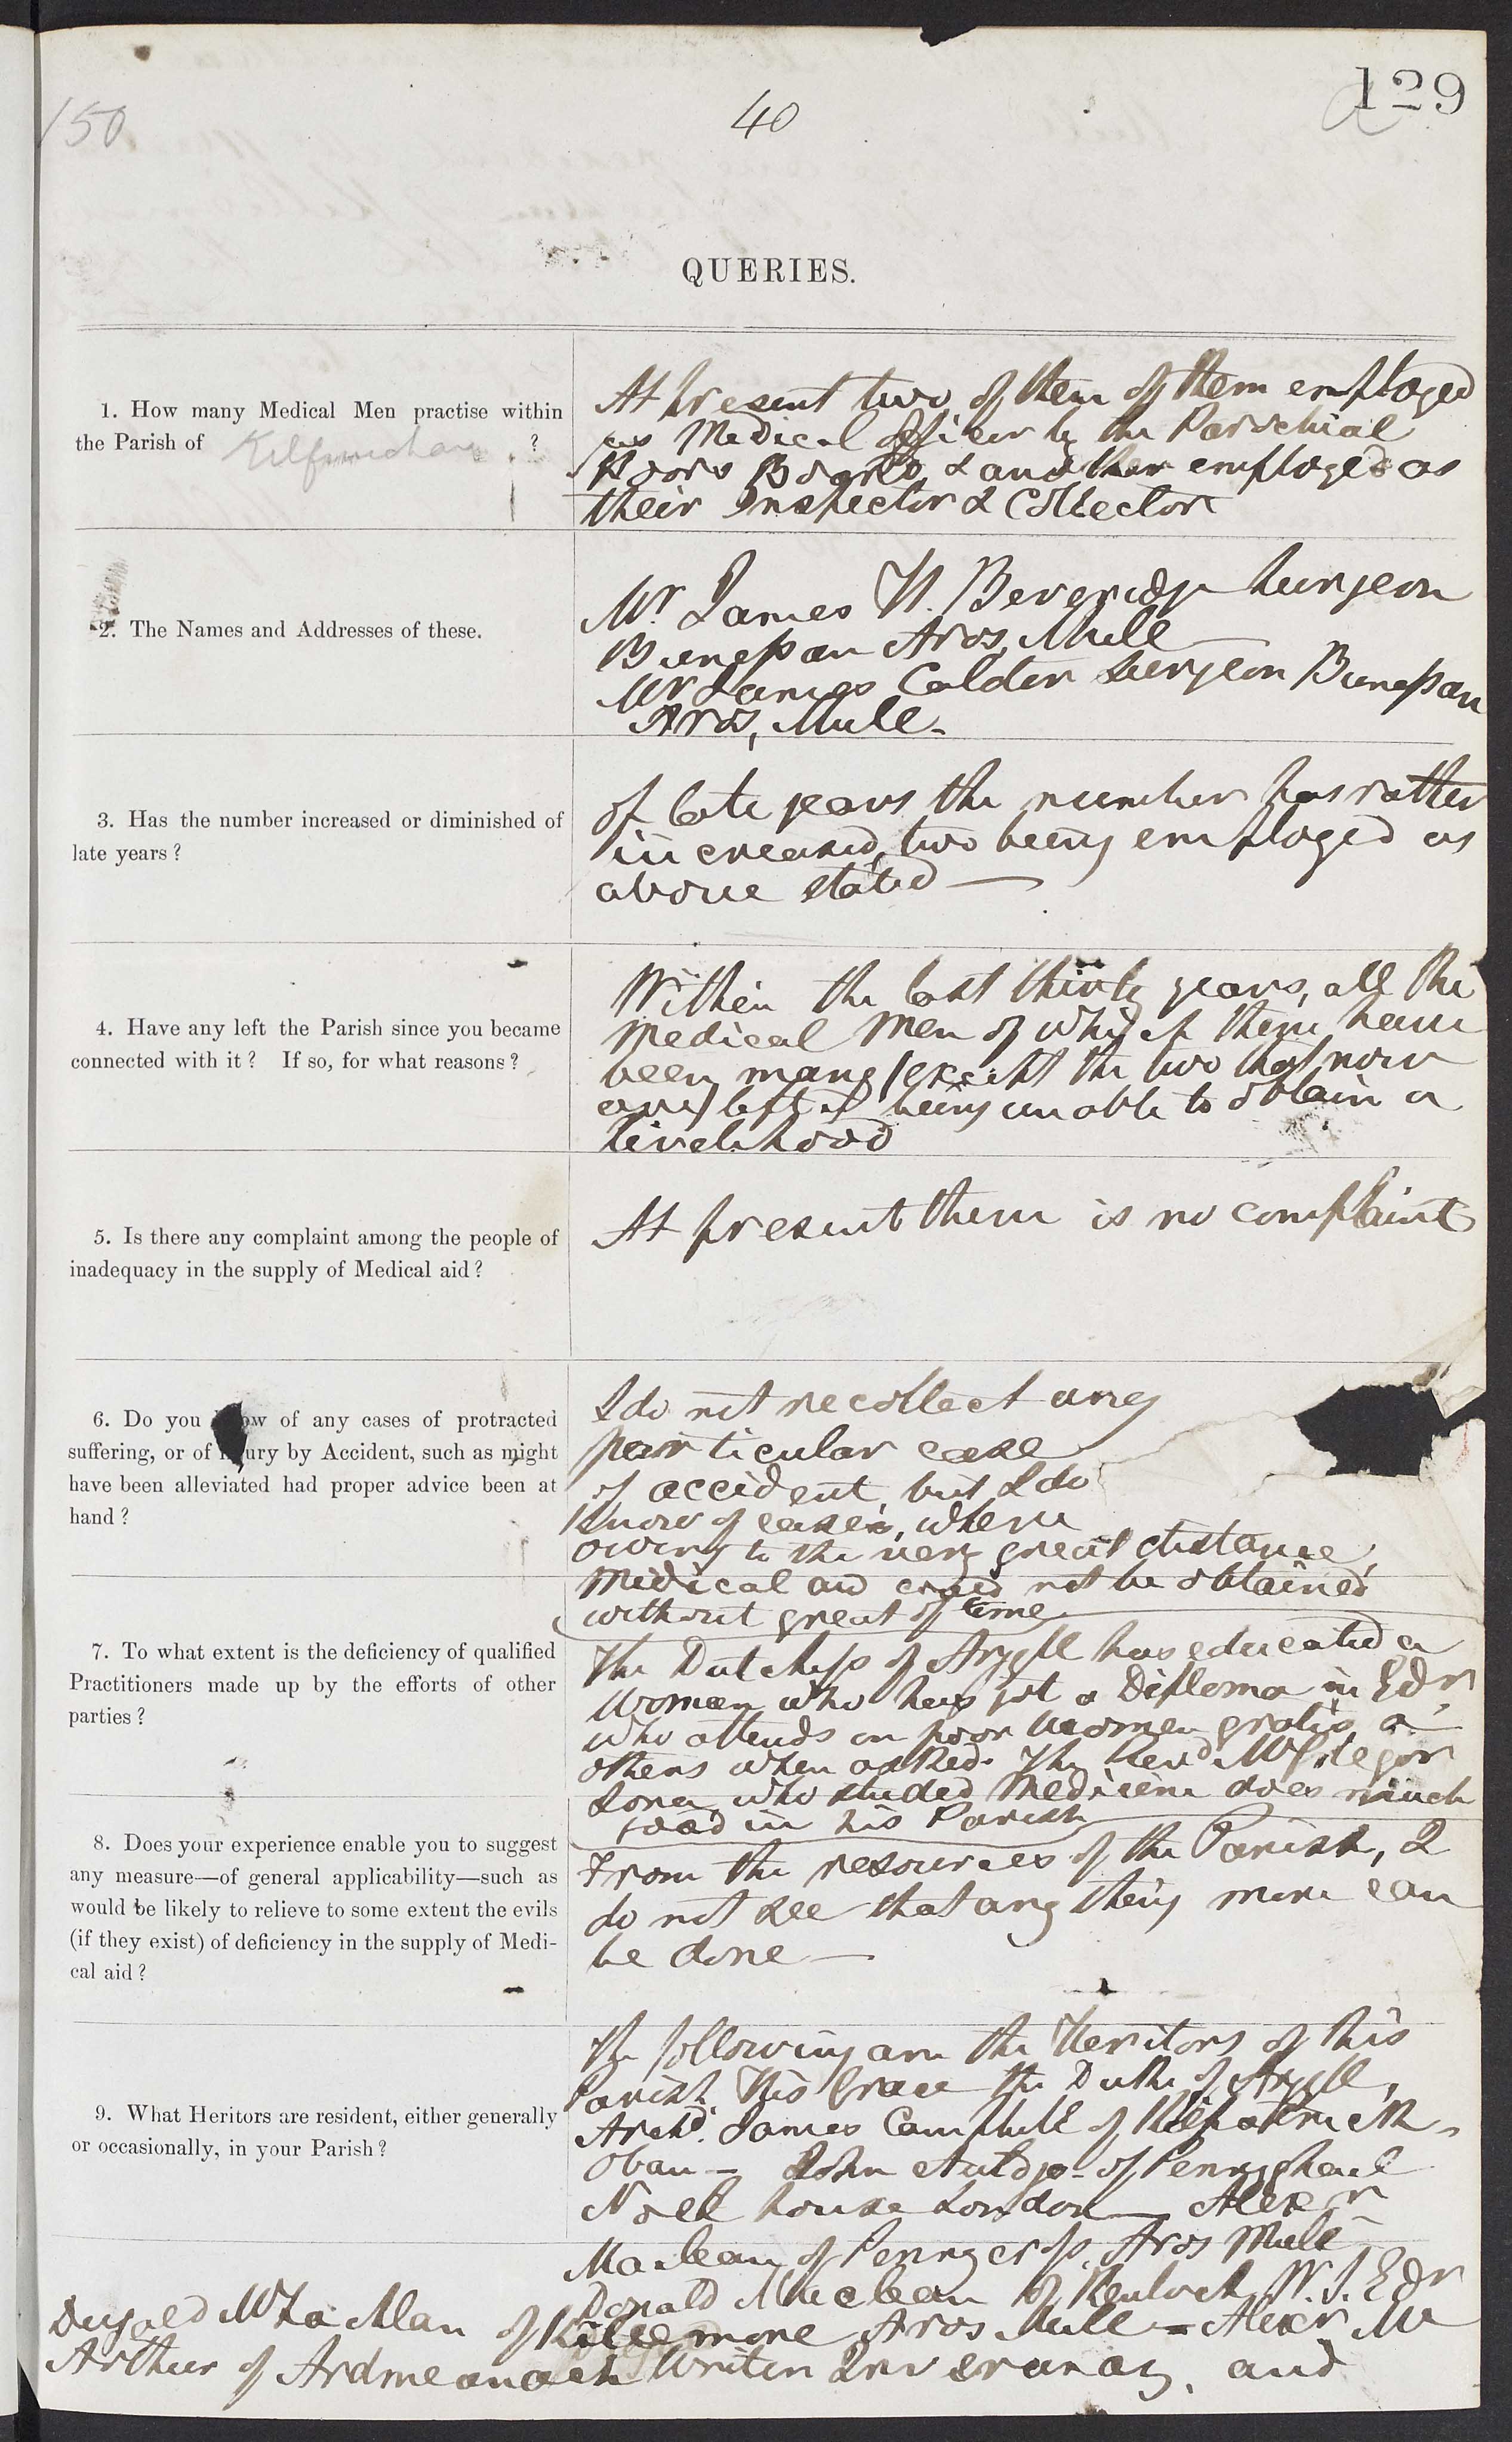 150
40
129
QUERIES.
1. How many Medical Men practise within
the Parish of Kilfinichen ?
At present two of them of them employed
as Medical Officer by the Parochial
Board & another employed as
their Inspector & Collector
2. The Names and Addresses of these.
Mr. James H. Beveridge Surgeon
Bunessan Aros, Mull
Mr James Calder Surgeon Bunessan
Aros, Mull.
3. Has the number increased or diminished of
late years ?
of late years the number has rather
increased, two being employed as
above stated
4. Have any left the Parish since you became
connected with it ? If so, for what reasons ?
Within the last thirty years, all the
Medical Men of which there have
been many (except the two that now
are) left it being unable to obtain a
livelihood
5. Is there any complaint among the people of
inadequacy in the supply of Medical aid ?
At present there is no complaint
6. Do you know of any cases of protracted
suffering, or of injury by Accident, such as might
have been alleviated had proper advice been at
hand ?
I do not recollect any
particular case
of accident, but I do
know of cases, where
owing to the very great distance,
Medical aid could not be obtained
without great of time
7. To what extent is the deficiency of qualified
Practitioners made up by the efforts of other
parties ?
The Dutchess of Argyll has educated a
woman who has got a Diploma in Edr
who attends on poor women gratis &
others when asked. The Revd McGregor
Iona, who studed Medicine does much
good in his Parish
8. Does your experience enable you to suggest
any measure—of general applicability—such as
would be likely to relieve to some extent the evils
(if they exist) of deficiency in the supply of Medi-
cal aid ?
From the resources of the Parish, I
do not see that any thing more can
be done
9. What Heritors are resident, either generally
or occasionally, in your Parish ?
The following are the Heritors of this
Parish. His Grace the Duke of Argyll,
Archd. James Campbell of Kilpatrick
Oban – John Auldjo of Pennyghael
Noel house London – Alexr
Maclean of Pennycross, Aros Mull
Donald Maclean of Kenloch W.S. Edr
Dugald McLachlan of Killemore Aros Mull – Alexr Mc
Arthur of Ardmeanach Writer Inveraray, and